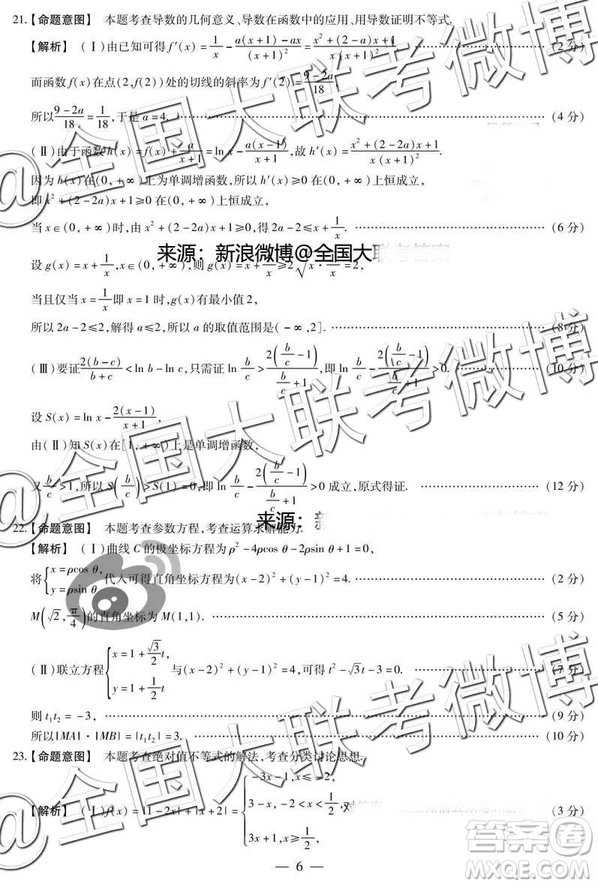 21.【命题意图】 本题考查导数的几何意义、导数在函数中的应用、用导数证明不等式.
【解析】 (Ⅰ)由已知可得 f′(x) = 1/x - (a(x+1)-ax)/(x+1)² = (x²+(2-a)x+1)/(x(x+1)²). (2分)
而函数 f(x) 在点(2,f(2))处的切线的斜率为 (9-2a)/18,
所以 (9-2a)/18 = 1/18, 于是 a=4. (4分)
(Ⅱ)由于函数 h(x) = f(x) + a/(x+1) = ln x - a(x-1)/(x+1), 故 h′(x) = (x²+(2-2a)x+1)/(x(x+1)²).
因为 h(x) 在(0,+∞)上为单调增函数,所以 h′(x)≥0 在(0,+∞)上恒成立,
即 x²+(2-2a)x+1≥0 在(0,+∞)上恒成立,
当 x∈(0,+∞)时,由 x²+(2-2a)x+1≥0,得 2a-2≤x+1/x. (6分)
来源：新浪微博@全国大联考答案
设 g(x)=x+1/x,x∈(0,+∞),则 g(x)=x+1/x≥2√(x·1/x)=2,
当且仅当 x=1/x 即 x=1 时,g(x)有最小值2,
所以 2a-2≤2,解得 a≤2,所以 a 的取值范围是(-∞,2]. (8分)
(Ⅲ)要证 2(b-c)/(b+c) < ln b - ln c,只需证 ln b/c > 2(b/c-1)/(b/c+1),即 ln b/c - 2(b/c-1)/(b/c+1) > 0. (10分)
设 S(x)=ln x - 2(x-1)/(x+1),
由(Ⅱ)知 S(x)在[1,+∞)上是单调增函数,
又 b/c>1,所以 S(b/c)>S(1)=0,即 ln b/c - 2(b/c-1)/(b/c+1) > 0 成立,原式得证. (12分)
来源：新
22.【命题意图】 本题考查参数方程,考查运算求解能力.
【解析】 (Ⅰ)曲线 C 的极坐标方程为 ρ²-4ρcos θ-2ρsin θ+1=0,
将 {x=ρcos θ, y=ρsin θ, 代入可得直角坐标方程为(x-2)²+(y-1)²=4. (2分)
M(√2, π/4)的直角坐标为 M(1,1). (5分)
(Ⅱ)联立方程 {x=1+(√3/2)t, y=1+(1/2)t 与(x-2)²+(y-1)²=4,可得 t²-√3t-3=0. (7分)
则 t₁t₂=-3, (9分)
所以|MA|·|MB|=|t₁t₂|=3. (10分)
23.【命题意图】 本题考查绝对值不等式的解法,考查分类讨论思想.
【解析】 (Ⅰ)f(x)=|1-2x|+|x+2|= {-3x-1,x≤-2, 3-x,-2<x<1/2, 3x+1,x≥1/2, (3分)
— 6 —
@全国大联考微博
@全国大联考微博
@全国大联考微博
答案圈
MXQE.COM